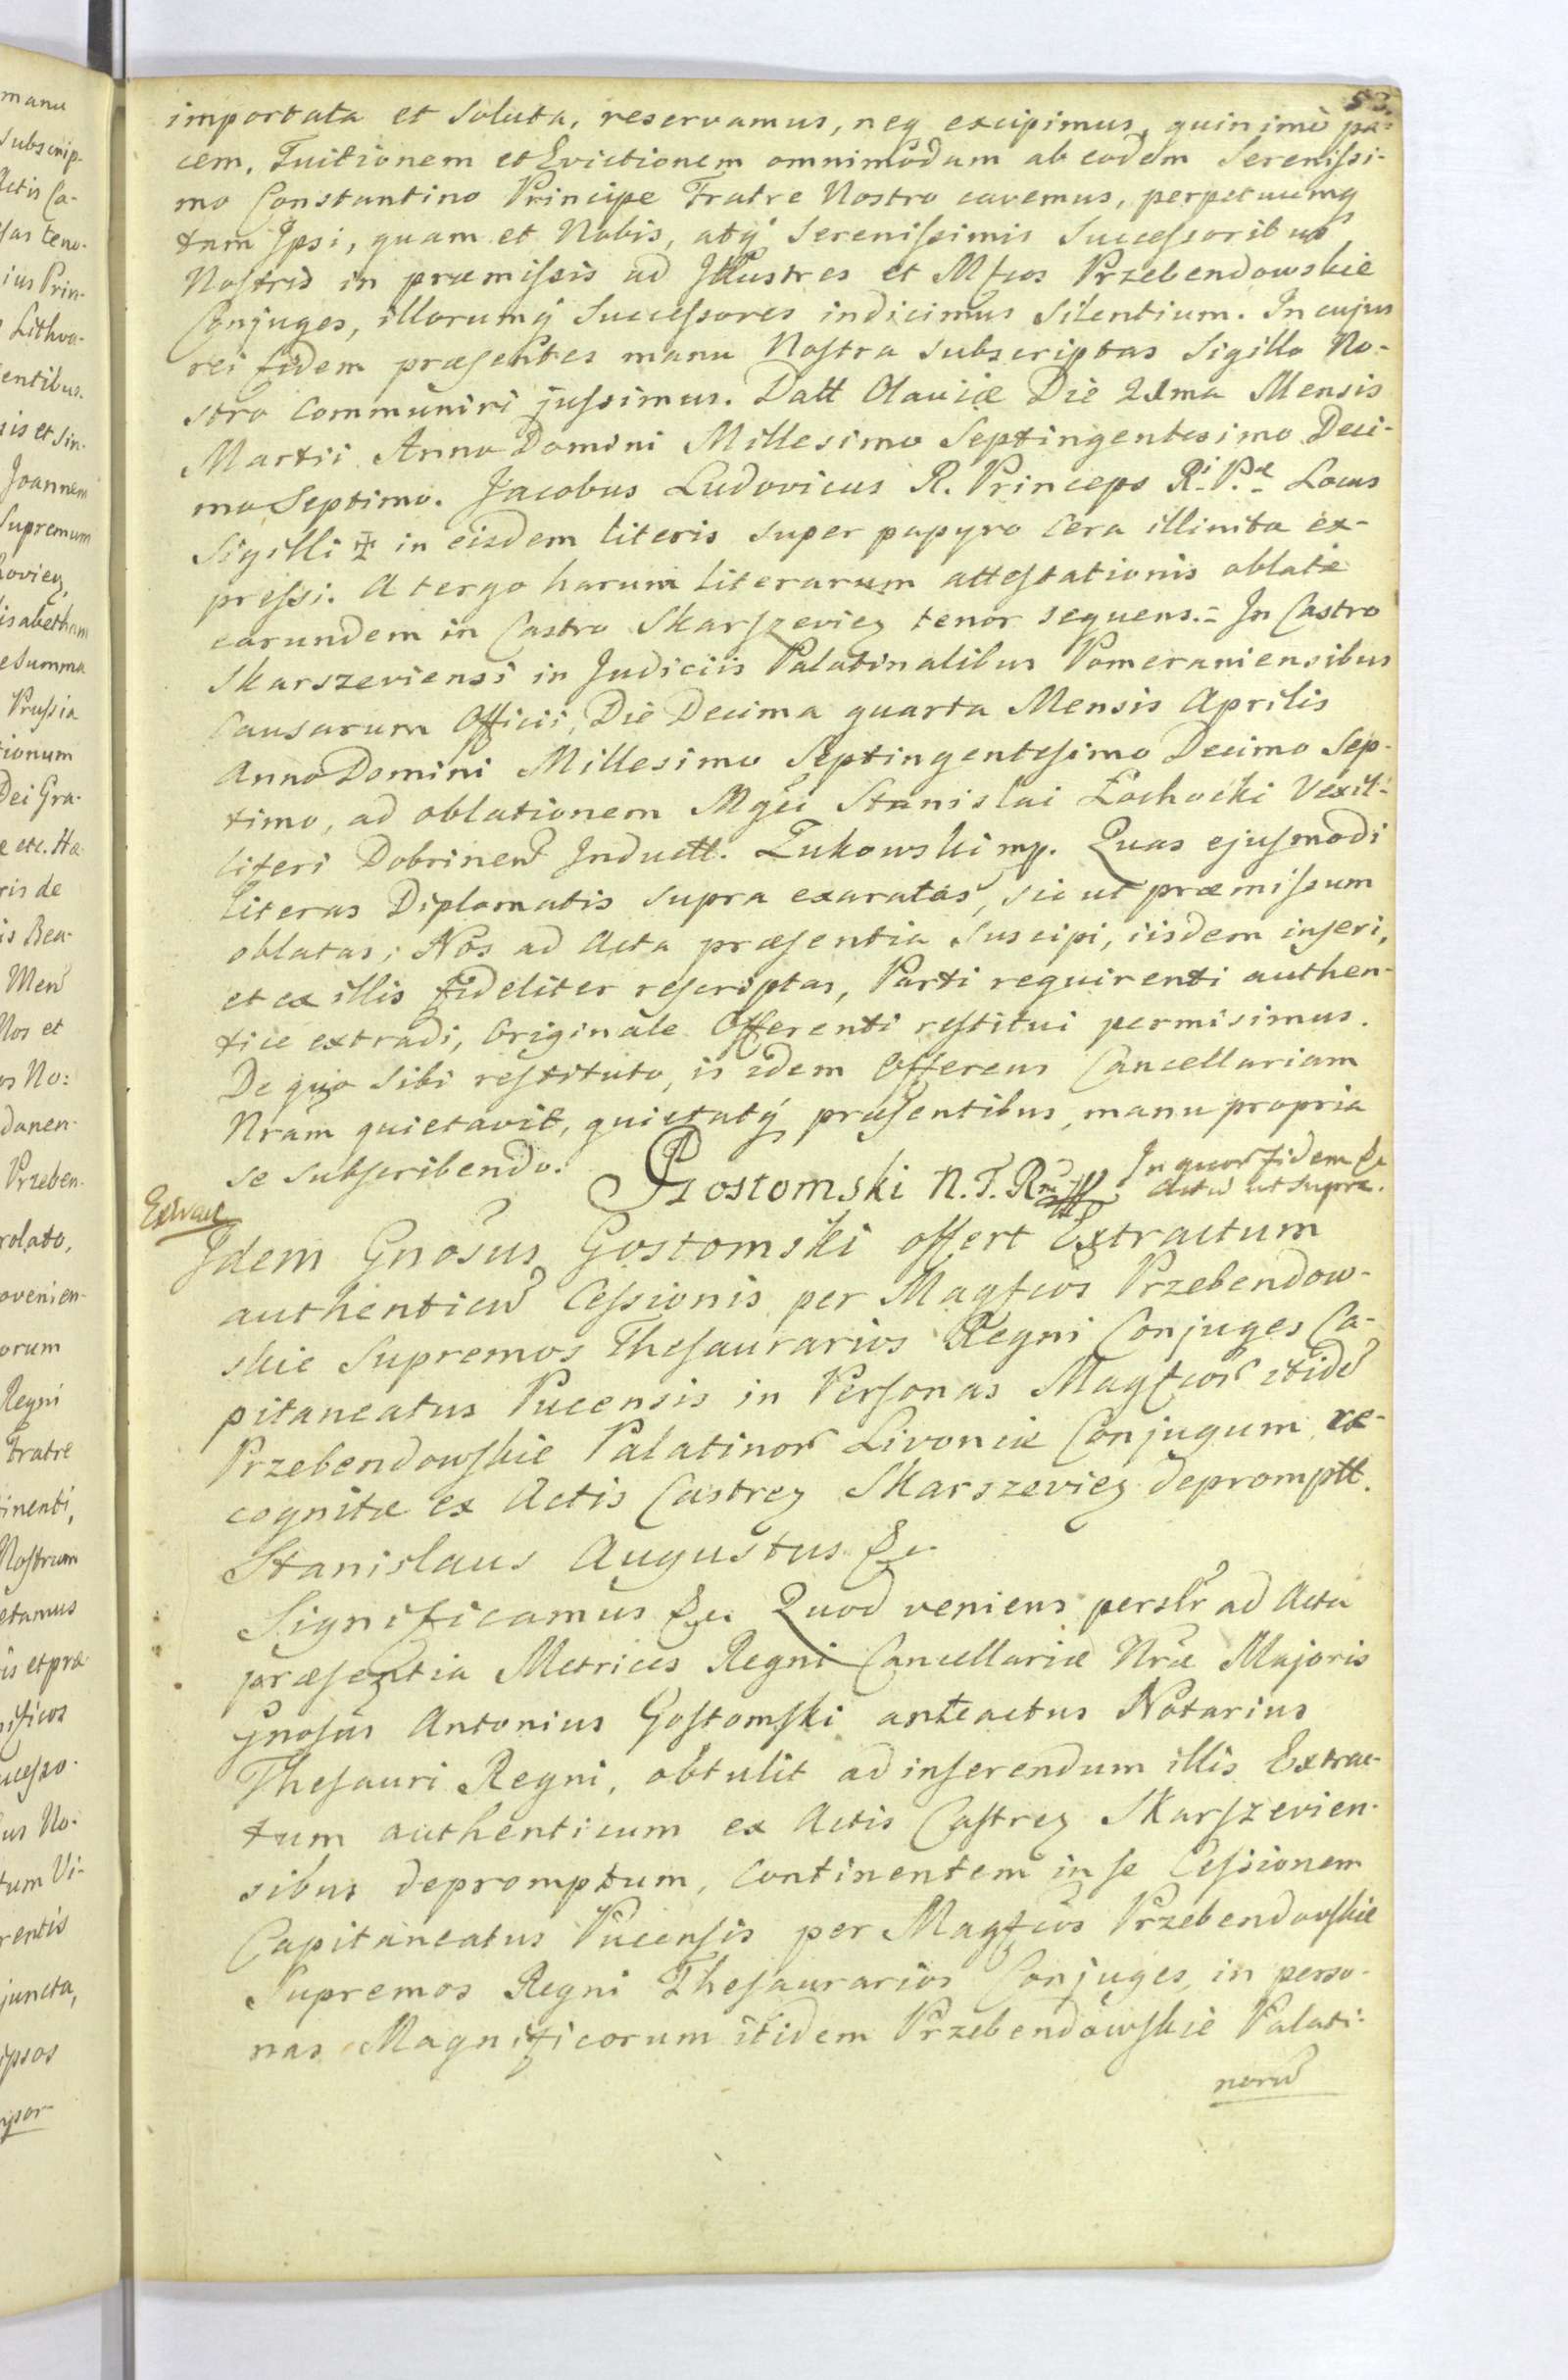 53.
importata et soluta, reservamus, neq excipimus, quin imò pa-
cem, Tuitionem et Evictionem omnimodam ab eodem Serenissi-
mo Constantino Principe Fratre Nostro cavemus, perpetuumq
tam Ipsi, quam et Nobis, atq Serenissimis Successoribus
Nostris in præmissis ad Illustres et Mfcos Przebendowskie
Conjuges, illorumq Successores indicimus Silentium. In cujus
rei fidem præsentes manu Nostra subscriptas Sigillo No-
stro communiri jussimus. Datt Olaviæ Die Mensis
Martii Anno Domini Millesimo Septingentesimo Deci-
mo Septimo. Jacobus Ludovicus R. Princeps Ri. P.æ Locus
Sigilli in eisdem literis super papyro cera illinita ex-
pressi. A tergo harum literarum attestationis oblatæ
earundem in Castro Skarszeviez tenor sequens.- In Castro
Skarszeviensi in Judiciis Palatinalibus Pomeraniensibus
Causarum Officii, Die Decima quarta Mensis Aprilis
Anno Domini Millesimo Septingentesimo Decimo Sep-
timo, ad oblationem Mgci Stanislai Łochocki Vexil-
liferi Dobrinen Inductt. Zukowski mp. Quas ejusmodi
literas Diplomatis supra exaratas, sic ut præmissum
oblatas; Nos ad Acta præsentia suscipi, iisdem inseri,
et ex illis fideliter rescriptas, Parti requirenti authen-
tice extradi, Originale Offerenti restitui permisimus.
De quo sibi restituto, is idem Offerens Cancellariam
Nram quietavit, quietatq præsentibus, manu propria
se subscribendo. Gostomski N.T.R. mp In quor fidem &c
Actu ut supra.
Idem Gnosus Gostomski offert Extractum
authenticu Cessionis per Magfcos Przebendow-
skie Supremos Thesaurarios Regni Conjuges Ca-
pitaneatus Pucensis in Personas Magfcor itide
Przebendowskie Palatinor Livoniæ Conjugum re-
cognitæ ex Actis Castrez Skarszeviez depromptt.
Stanislaus Augustus &c.
Significamus &c. Quod veniens perslr ad Acta
præsentia Metrices Regni Cancellariæ Nræ Majoris
Gnosus Antonius Gostomski anteactus Notarius
Thesauri Regni, obtulit ad inserendum illis Extrac-
tum authenticum ex Actis Castrez Skarszevien-
sibus depromptum, continentem in se Cessionem
Capitaneatus Pucensis per Magfcos Przebendowskie
Supremos Regni Thesaurarios Conjuges, in perso-
nas Magnificorum itidem Przebendowskie Palati-
noru